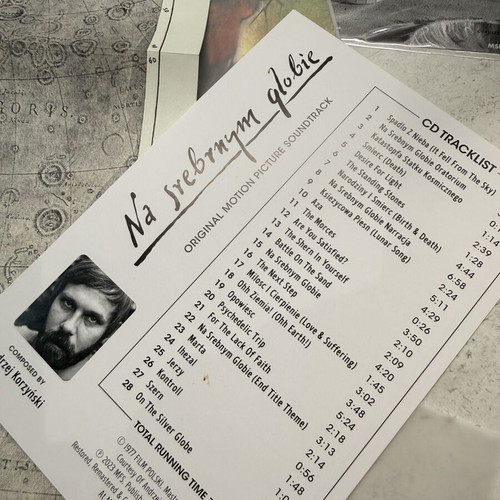 Na srebrnym globie
ORIGINAL MOTION PICTURE SOUNDTRACK
CD TRACKLIST
1 Spadlo Z Nieba (It Fell From The Sky
2 Na Srebrnym Globie Oratorium
3 Katastopfa Statku Kosmicznego
4 Smierc (Death)
5 Desire For Light
6 The Standing Stones
7 Narodziny I Smierc (Birth & Death)
8 Na Srebrnym Globie Narracja
9 Ksiezycowa Piesn (Lunar Song)
10 Aza
11 The Morces
12 Are You Satisfied?
13 The Shern In Yourself
14 Battle On The Sand
15 Na Srebrnym Globie
16 The Next Step
17 Milosc I Cierpienie (Love & Suffering)
18 Ohh Ziemia! (Ohh Earth!)
19 Opowiesc
20 Psychedelic Trip
21 For The Lack Of Faith
22 Na Srebrnym Globie (End Title Theme)
23 Marta
24 Ihezal
25 Jerzy
26 Kontroll
27 Szern
28 On The Silver Globe
1:14
2:39
1:28
4:44
6:58
2:24
5:11
4:29
0:26
3:50
2:10
2:09
4:20
1:45
3:02
3:48
5:24
2:18
3:13
2:14
0:56
1:48
TOTAL RUNNING TIME -
COMPOSED BY
drzej Korzyński
© 1977 FILM POLSKI. Mast
Courtesy Of Andrze
℗ 2023 MFS. Publis
Restored, Remastered &
60